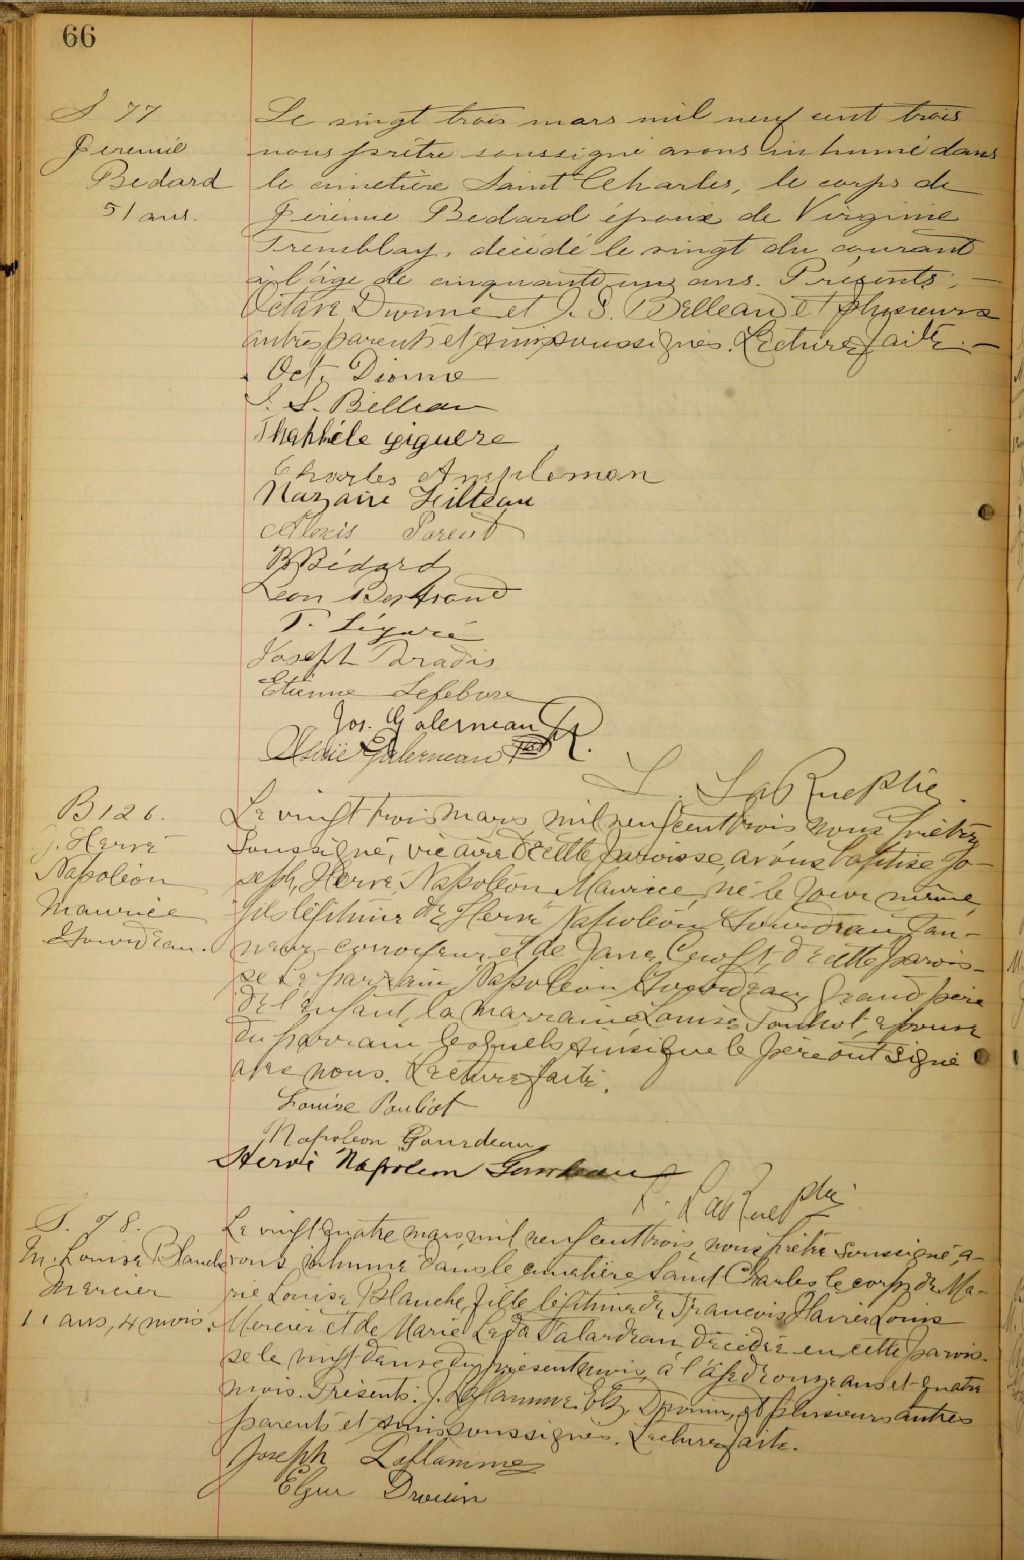 66
S 77
Jérémie
Bedard
51 ans.
Le vingt trois mars mil neuf cent trois
nous prêtre soussigné avons inhumé dans
le cimetière Saint Charles, le corps de
Jérémie Bedard époux de Virginie
Tremblay, décédé le vingt du courant
à l'âge de cinquante un ans. Présents, —
Octave Dionne et J. S. Belleau et plusieurs
autres parents et amis soussignés. Lecture faite. —
Oct. Dionne
J. S. Belleau
Thaphéle giguere
Charles Ampleman
Nazaire Filteau
Alexis Parent
B Bédard
Leon Bertrand
T. Légaré
Joseph Paradis
Etienne Lefebvre
Jos. Galerneau
Galerneau
L. LaRue ptre.
B 126.
J. Hervé
Napoléon
Maurice
Gourdeau.
Le vingt trois mars mil neuf cent trois nous prêtre
soussigné, vicaire de cette paroisse, avons baptisé Jo-
seph, Hervé, Napoléon Maurice, né le jour même,
fils légitime de Hervé Napoléon Gourdeau, tan-
neur-corroyeur et de Jane de cette parois-
se Le parrain Napoléon Gourdeau, grand père
de l'enfant, la marraine Louise Pouliot, épouse
du parrain lesquels ainsi que le père ont signé
avec nous. Lecture faite.
Louise Pouliot
Napoleon Gourdeau
Hervé Napoleon Gourdeau
L. LaRue ptre.
S. 78.
M. Louise Blanche
Mercier
11 ans, 4 mois.
Le vingt quatre mars mil neuf cent trois, nous prêtre soussigné, a-
vons inhumé dans le cimetière Saint Charles le corps de Ma-
rie Louise Blanche, fille légitime de François Xavier Louis
Mercier et de Marie Léda Talardeau, décédée en cette parois-
se le vingt deux du présent mois, à l'âge de onze ans et quatre
mois. Présents: J. Laflamme. Drouin, et plusieurs autres
parents et amis soussignés. Lecture faite.
Joseph Laflamme
Drouin